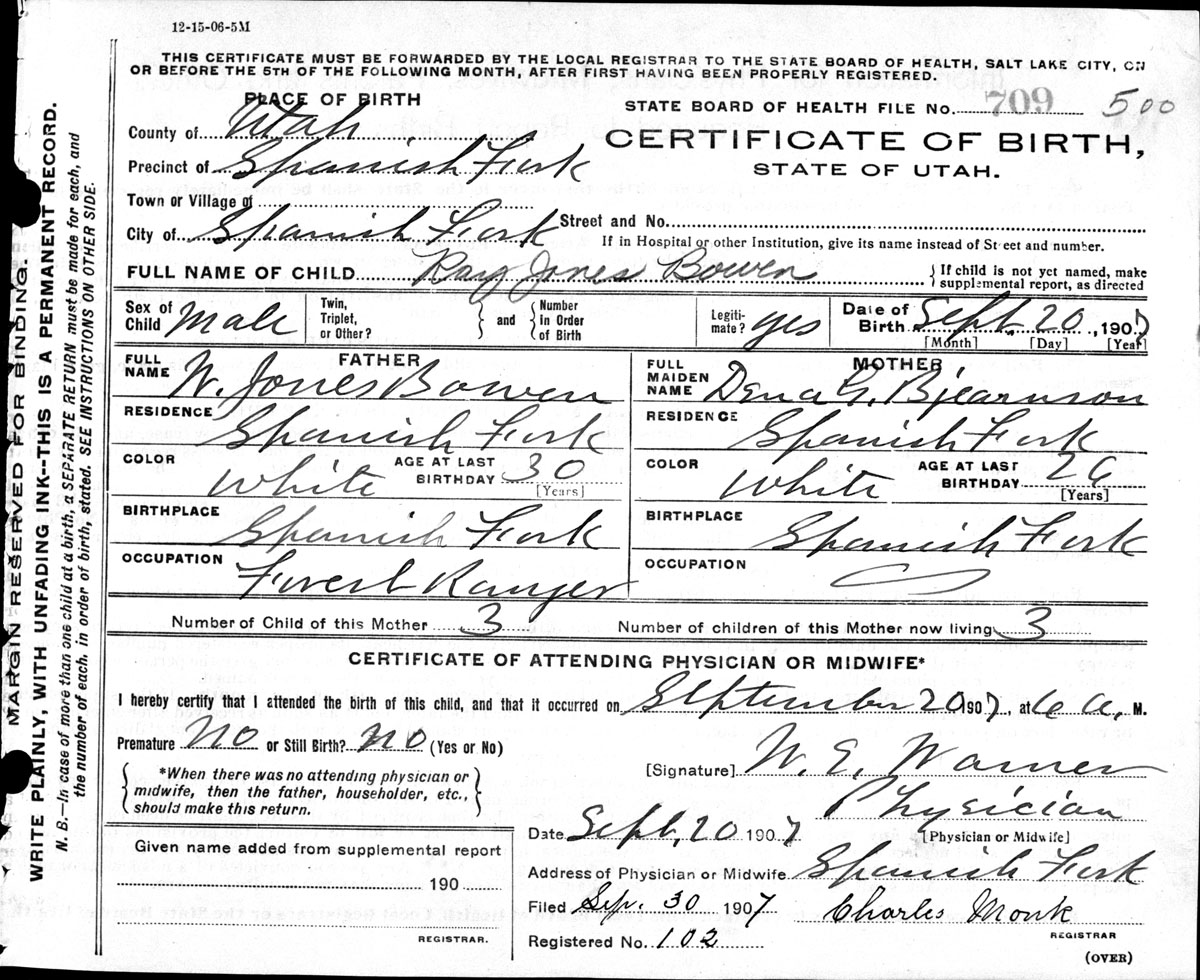 12-15-06-5M
THIS CERTIFICATE MUST BE FORWARDED BY THE LOCAL REGISTRAR TO THE STATE BOARD OF HEALTH, SALT LAKE CITY, ON
OR BEFORE THE 5TH OF THE FOLLOWING MONTH, AFTER FIRST HAVING BEEN PROPERLY REGISTERED.
PLACE OF BIRTH
STATE BOARD OF HEALTH FILE No. 709 500
County of Utah
CERTIFICATE OF BIRTH,
Precinct of Spanish Fork
STATE OF UTAH.
Town or Village of
City of Spanish Fork Street and No.
If in Hospital or other Institution, give its name instead of Street and number.
FULL NAME OF CHILD Ray Jones Bowen { If child is not yet named, make
supplemental report, as directed
Sex of Child Male Twin, Triplet, or Other? } and { Number in Order of Birth Legiti-mate? yes Date of Birth Sept. 20, 1907
[Month] [Day] [Year]
FATHER
FULL NAME W. Jones Bowen
RESIDENCE Spanish Fork
COLOR White AGE AT LAST BIRTHDAY 30
[Years]
BIRTHPLACE Spanish Fork
OCCUPATION Forest Ranger
MOTHER
FULL MAIDEN NAME Dena G. Bjearnson
RESIDENCE Spanish Fork
COLOR White AGE AT LAST BIRTHDAY 26
[Years]
BIRTHPLACE Spanish Fork
OCCUPATION
Number of Child of this Mother 3 Number of children of this Mother now living 3
CERTIFICATE OF ATTENDING PHYSICIAN OR MIDWIFE*
I hereby certify that I attended the birth of this child, and that it occurred on September 20 1907, at 6 a. M.
Premature No or Still Birth? No (Yes or No)
*When there was no attending physician or
midwife, then the father, householder, etc.,
should make this return.
[Signature] W. E. Warner
Physician
Date Sept, 20 1907 [Physician or Midwife]
Given name added from supplemental report
190
REGISTRAR.
Address of Physician or Midwife Spanish Fork
Filed Sep. 30 1907 Charles Monk
Registered No. 102 REGISTRAR
(OVER)
MARGIN RESERVED FOR BINDING.
WRITE PLAINLY, WITH UNFADING INK--THIS IS A PERMANENT RECORD.
N. B.—In case of more than one child at a birth, a SEPARATE RETURN must be made for each, and
the number of each, in order of birth, stated. SEE INSTRUCTIONS ON OTHER SIDE.